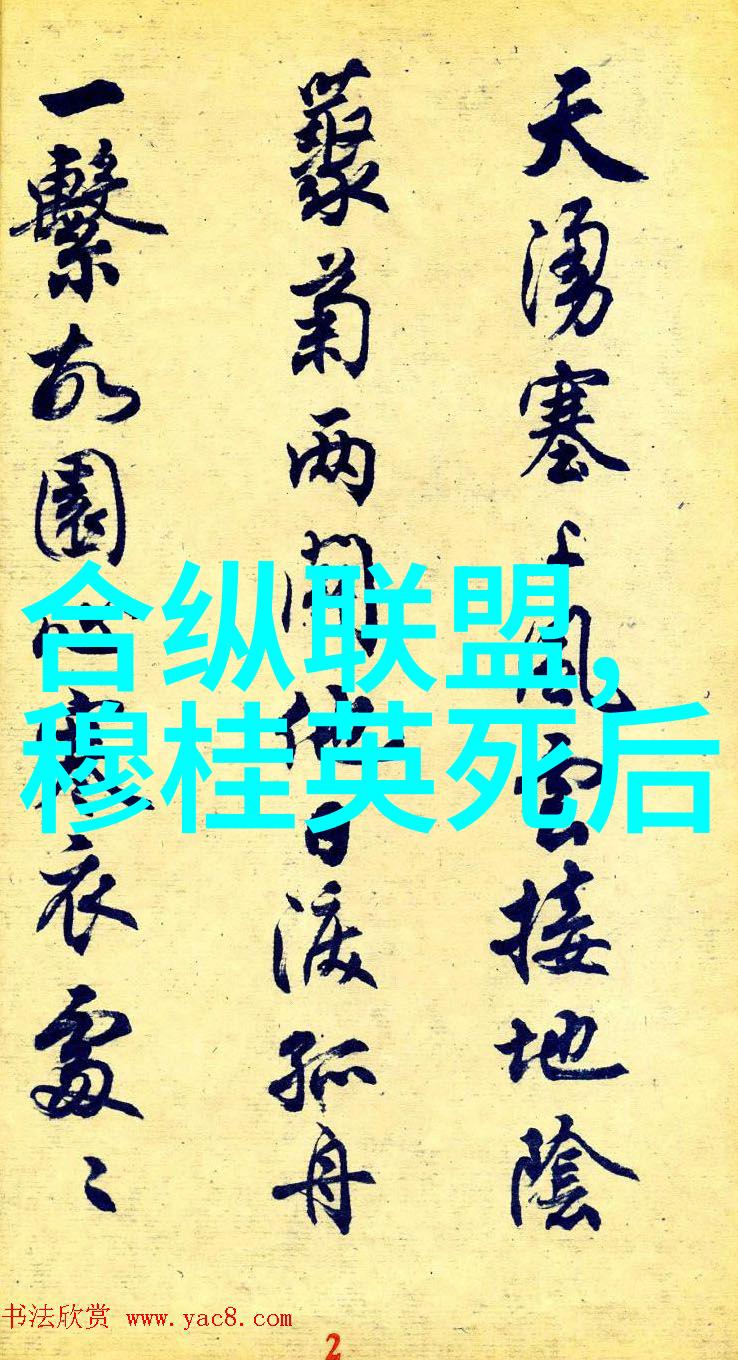 天湧塞上風雲接地陰
叢菊两開他日淚孤舟
一繫故園心寒衣處〻
合纵联盟,
穆桂英死后
书法欣赏 www.yac8.com
2